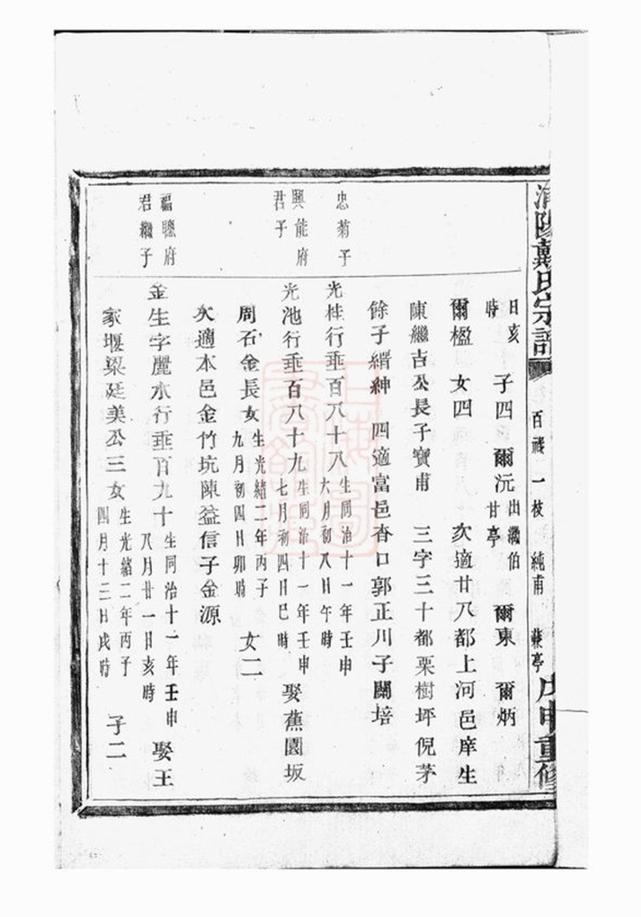 浦陽戴氏宗譜
百 一枝 純甫 兼亭
戊申重修
日亥時 子四 爾沅 出繼伯甘亭 爾東 爾炳
爾楹 女四 次適廿八都上河邑庠生
陳繼吉公長子寶甫 三字三十都栗樹坪倪茅
餘子縉紳 四適富邑杳口郭正川子關培
忠菊子
光桂行垂百八十八 生同治十一年壬申六月初八日午時
興能府君子
光池行垂百八十九 生同治十一年壬申七月初四日巳時 娶蕉園坂
周石金長女 生光緒二年丙子九月初四日卯時 女二
次適本邑金竹坑陳益信子金源
福聰府君繼子
金生字麗水行垂百九十 生同治十一年壬申八月廿一日亥時 娶王
家堰梁廷美公三女 生光緒二年丙子四月十三日戌時 子二